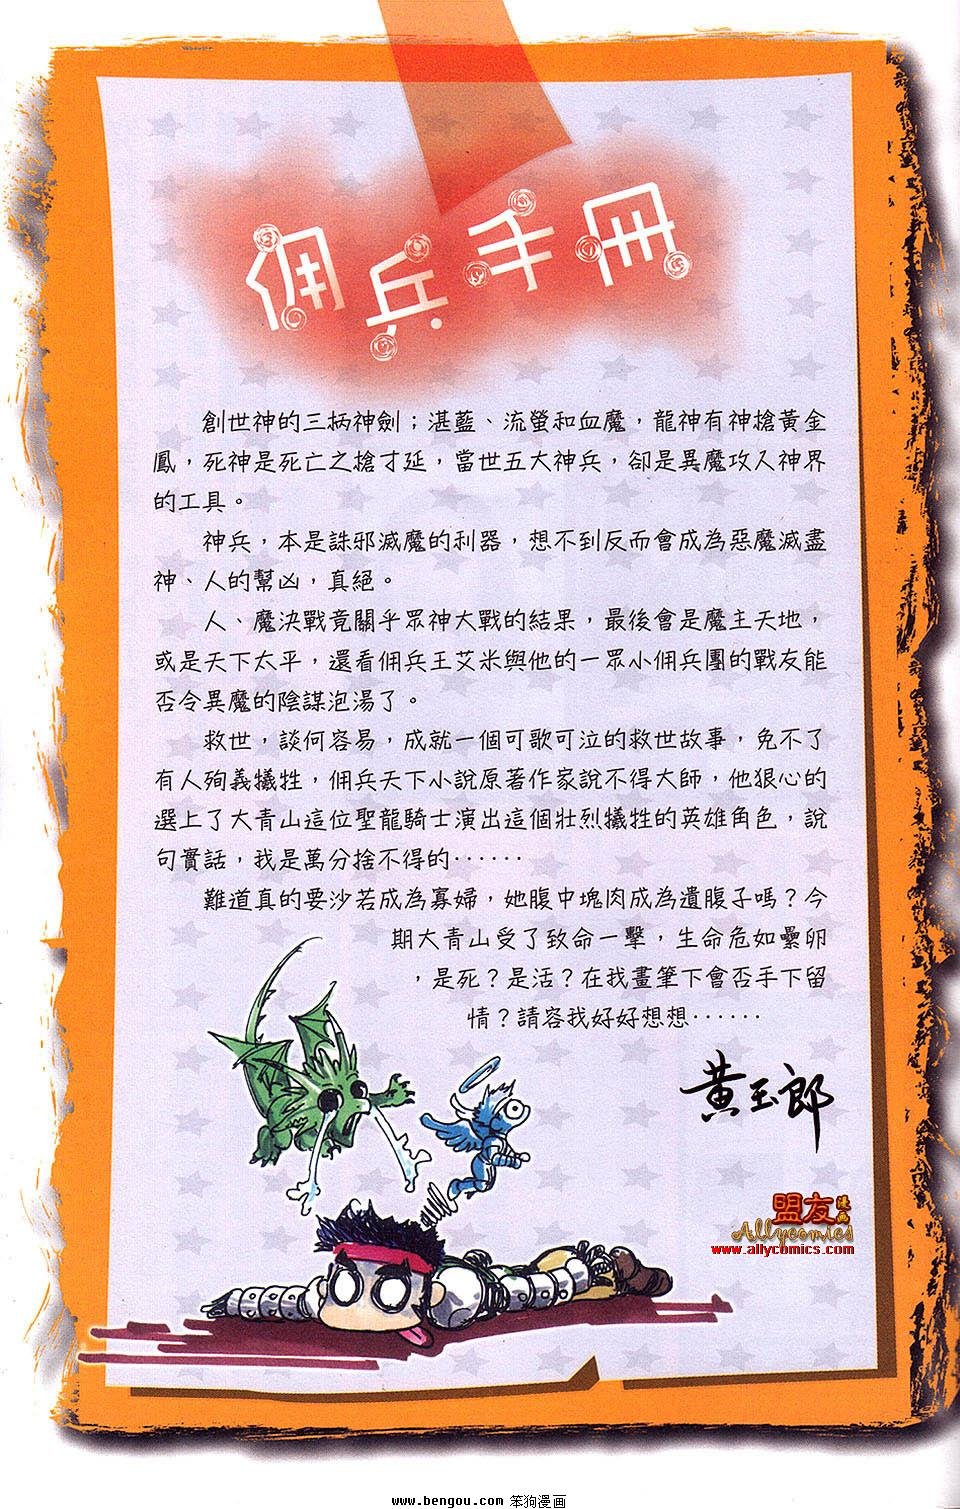 傭兵手冊
創世神的三柄神劍；湛藍、流螢和血魔，龍神有神槍黃金
鳳，死神是死亡之搶才延，當世五大神兵，卻是異魔攻入神界
的工具。
神兵，本是誅邪滅魔的利器，想不到反而會成為惡魔滅盡
神、人的幫凶，真絕。
人、魔決戰竟關乎眾神大戰的結果，最後會是魔主天地，
或是天下太平，還看傭兵王艾米與他的一眾小傭兵團的戰友能
否令異魔的陰謀泡湯了。
救世，談何容易，成就一個可歌可泣的救世故事，免不了
有人殉義犧牲，傭兵天下小說原著作家說不得大師，他狠心的
選上了大青山這位聖龍騎士演出這個壯烈犧牲的英雄角色，說
句實話，我是萬分捨不得的⋯⋯
難道真的要沙若成為寡婦，她腹中塊肉成為遺腹子嗎？今
期大青山受了致命一擊，生命危如壘卵
，是死？是活？在我畫筆下會否手下留
情？請容我好好想想⋯⋯
黃玉郎
盟友漫画
Allycomics
www.allycomics.com
www.bengou.com 笨狗漫画